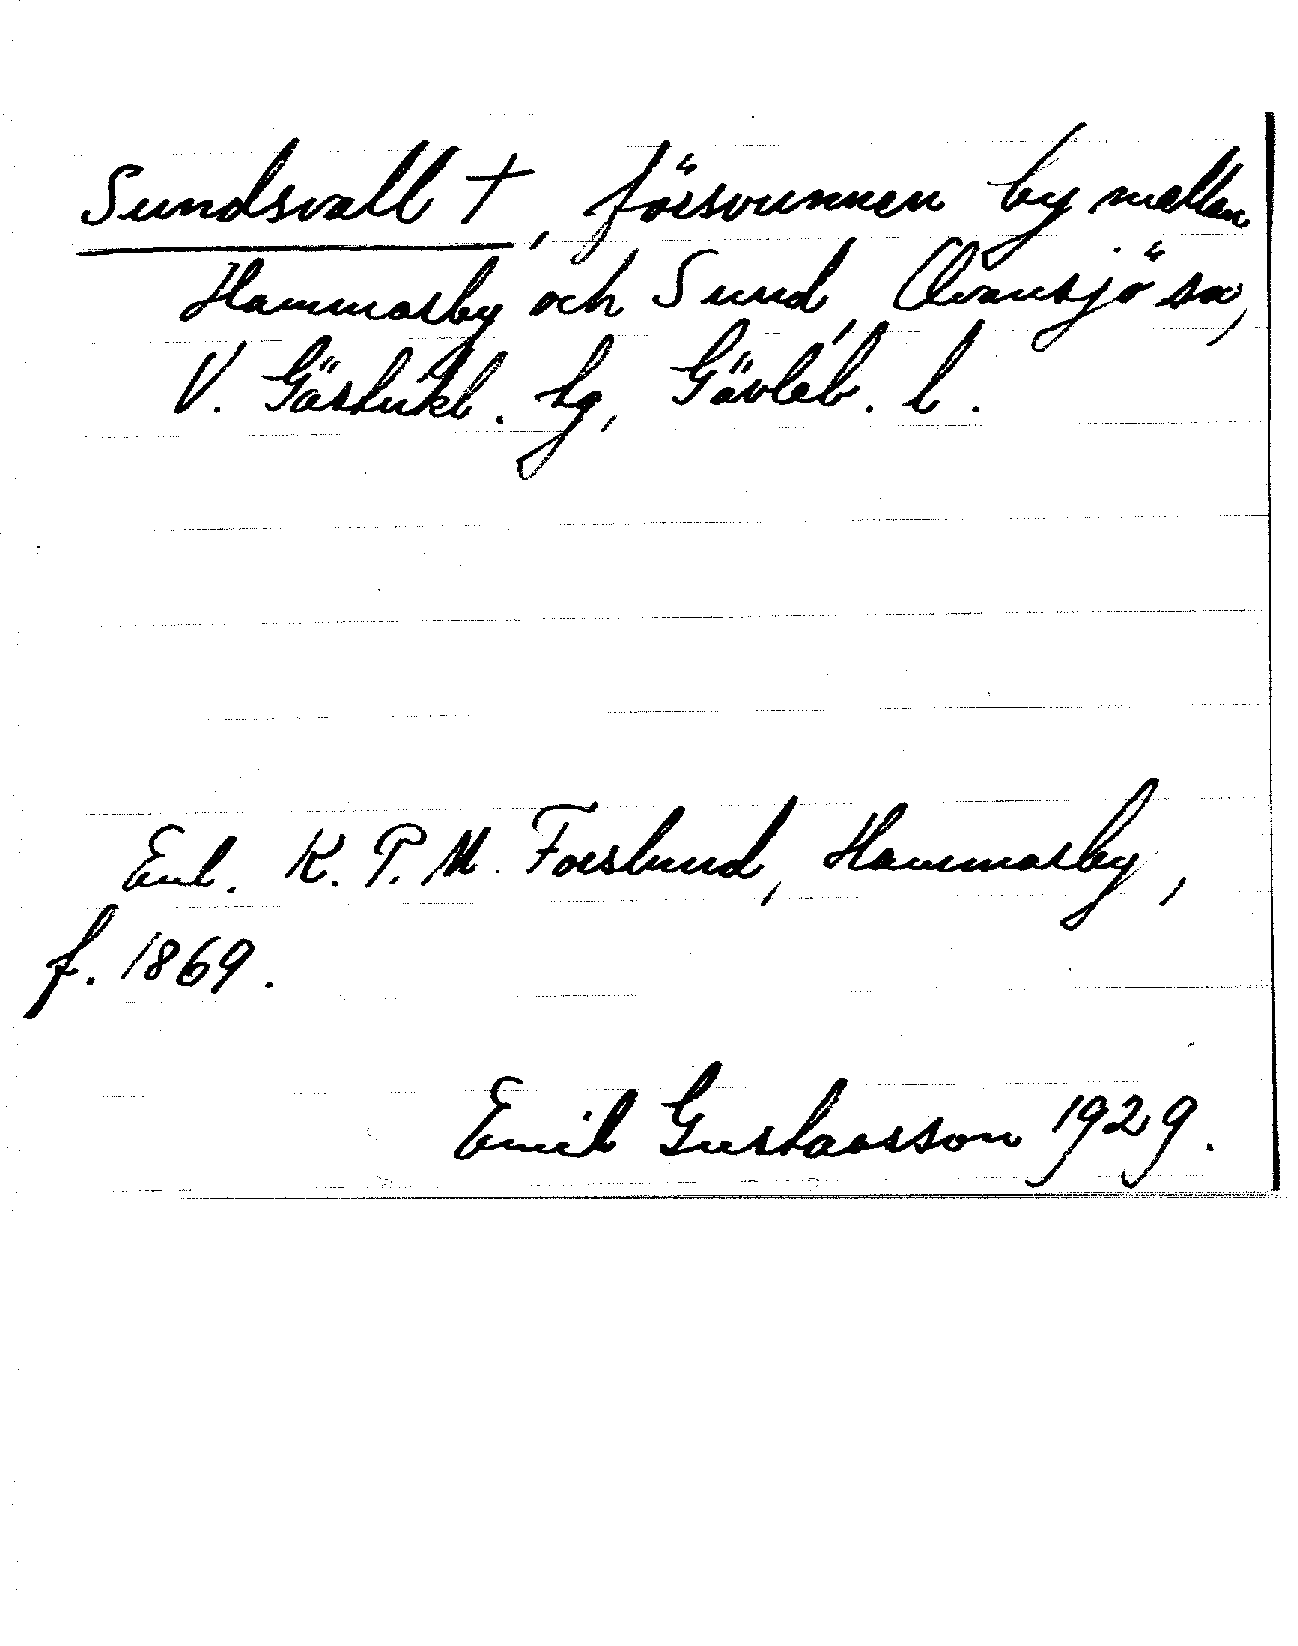 Sundsvall †, försvunnen by mellan
Hammarby och Sund, Ovansjö sn,
V. Gästrikl. hg, Gävleb. l.
Enl. K. P. M. Forslund, Hammarby,
f. 1869.
Emil Gustavsson 1929.